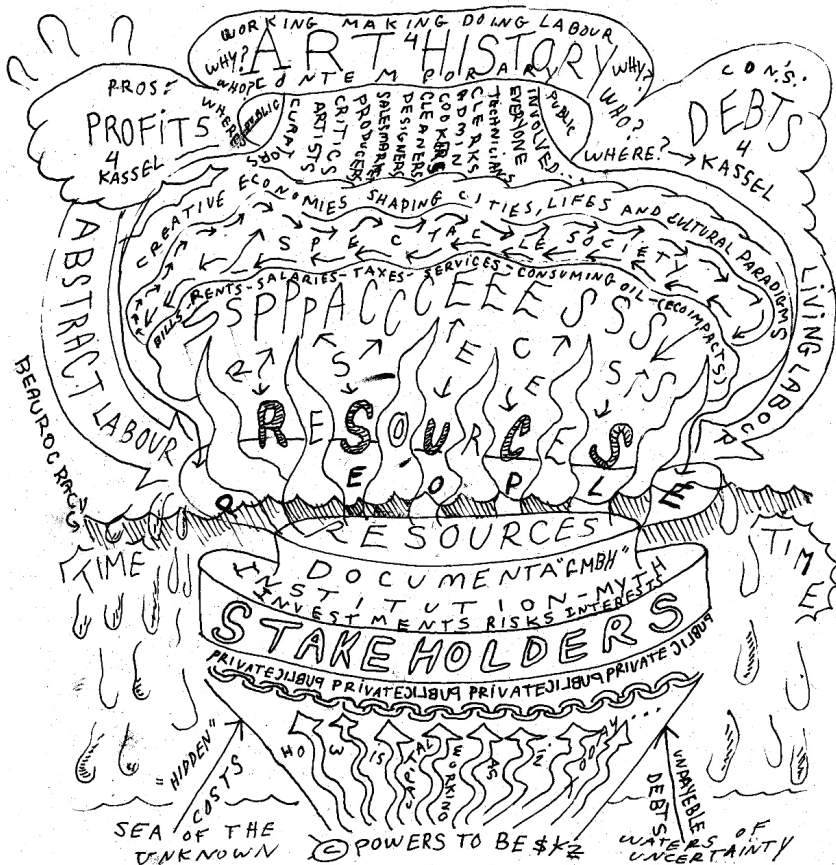 WORKING MAKING DOING LABOUR
ART 4 HISTORY
WHY?
WHO?
WHERE
CONTEMPORARY
WHY?
WHO?
WHERE? →
PROS:
PROFITS
4
KASSEL
CON'S:
DEBTS
4
KASSEL
PUBLIC
CURATORS
ARTISTS
CRITICS
PRODUCERS
DESIGNERS
CLEANERS
COOKERS
ADMIN
CLERKS
TECHNICIANS
EVERYONE
INVOLVED...
PUBLIC
CREATIVE ECONOMIES SHAPING CITIES, LIFES AND CULTURAL PARADIGMS
SPECTACLE SOCIETY
BILLS-RENTS-SALARIES-TAXES-SERVICES-CONSUMING OIL-(ECOIMPACTS)
ABSTRACT LABOUR
LIVING LABOUR
SPPPPACCCCEEESSSS
R? S E C E S S
RESOURCES
PEOPLE
BEAUROCRACY
TIME
TIME
RESOURCES
DOCUMENTA "GMBH"
INSTITUTION-MYTH
INVESTMENTS RISKS INTERESTS
STAKEHOLDERS
PRIVATE PUBLIC PRIVATE PUBLIC PRIVATE PUBLIC PRIVATE PUBLIC
HOW IS
WORKING
AS
"HIDDEN"
COSTS
UNPAYEBLE
DEBTS
SEA OF THE
UNKNOWN
© POWERS TO BE $
WATERS OF
UNCERTAINTY